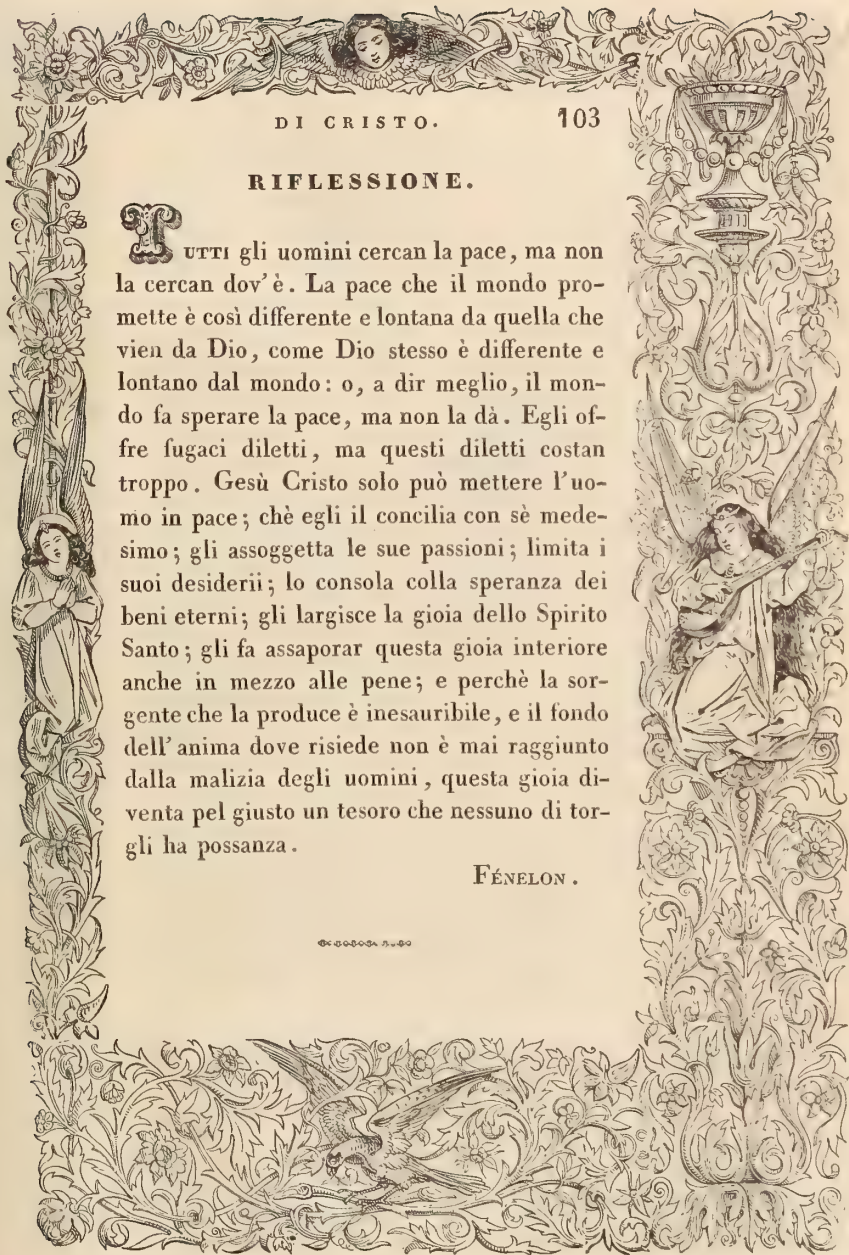 DI CRISTO. 103
RIFLESSIONE.
TUTTI gli uomini cercan la pace, ma non
la cercan dov' è. La pace che il mondo pro-
mette è così differente e lontana da quella che
vien da Dio, come Dio stesso è differente e
lontano dal mondo: o, a dir meglio, il mon-
do fa sperare la pace, ma non la dà. Egli of-
fre fugaci diletti, ma questi diletti costan
troppo. Gesù Cristo solo può mettere l'uo-
mo in pace; chè egli il concilia con sè mede-
simo; gli assoggetta le sue passioni; limita i
suoi desiderii; lo consola colla speranza dei
beni eterni; gli largisce la gioia dello Spirito
Santo; gli fa assaporar questa gioia interiore
anche in mezzo alle pene; e perchè la sor-
gente che la produce è inesauribile, e il fondo
dell' anima dove risiede non è mai raggiunto
dalla malizia degli uomini, questa gioia di-
venta pel giusto un tesoro che nessuno di tor-
gli ha possanza.
FÉNELON.